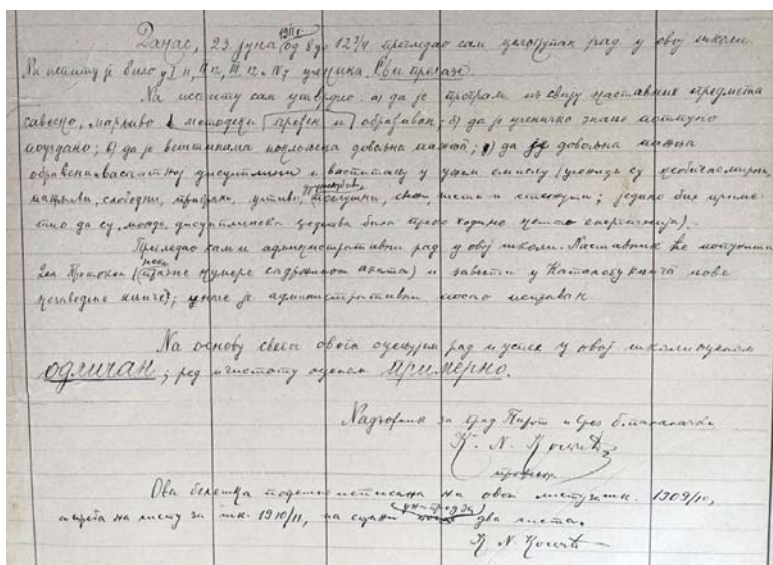 Данас, 23 јуна 1911 г. од 8 до 12 3/4 прегледао сам целокупан рад у овој школи.
На испиту је било у I 11, II 12, III 12 и IV 7 ученика. Сви прелазе.
На испиту сам утврдио: а) да је програм из свију наставних предмета
савесно, марљиво и методски пређен и обрађиван; б) да је ученичко знање потпуно
поуздано; в) да је вештинама поклоњена довољна пажња; г) да је довољна пажња
обраћена васпитној дисциплини и васпитању у ужем смислу (ученици су необично мирни,
пажљиви, слободни, прибрани, учтиви, послушни, чисти и; једино бих приме-
тио да су, можда, дисциплинска средства била преко године нешто енергичнија).
Прегледао сам и административни рад у овој школи. Наставник ће попунити
Протокол (неке нумере садржином аката) и завести у Каталог књига нове
незаведене књиге; иначе је административни посао исправан
На основу свега овога оцењујем рад и успех у овој школи оценом
одличан; ред и чистоту оценом примерно.
Надзорник за град Пирот и срез
К. Н. Костић
професор
Ова белешка погрешно исписана на овом листу за шк. 1909/10,
а треба на листу за шк. 1910/11, на страни унапред за два листа.
К. Н. Костић